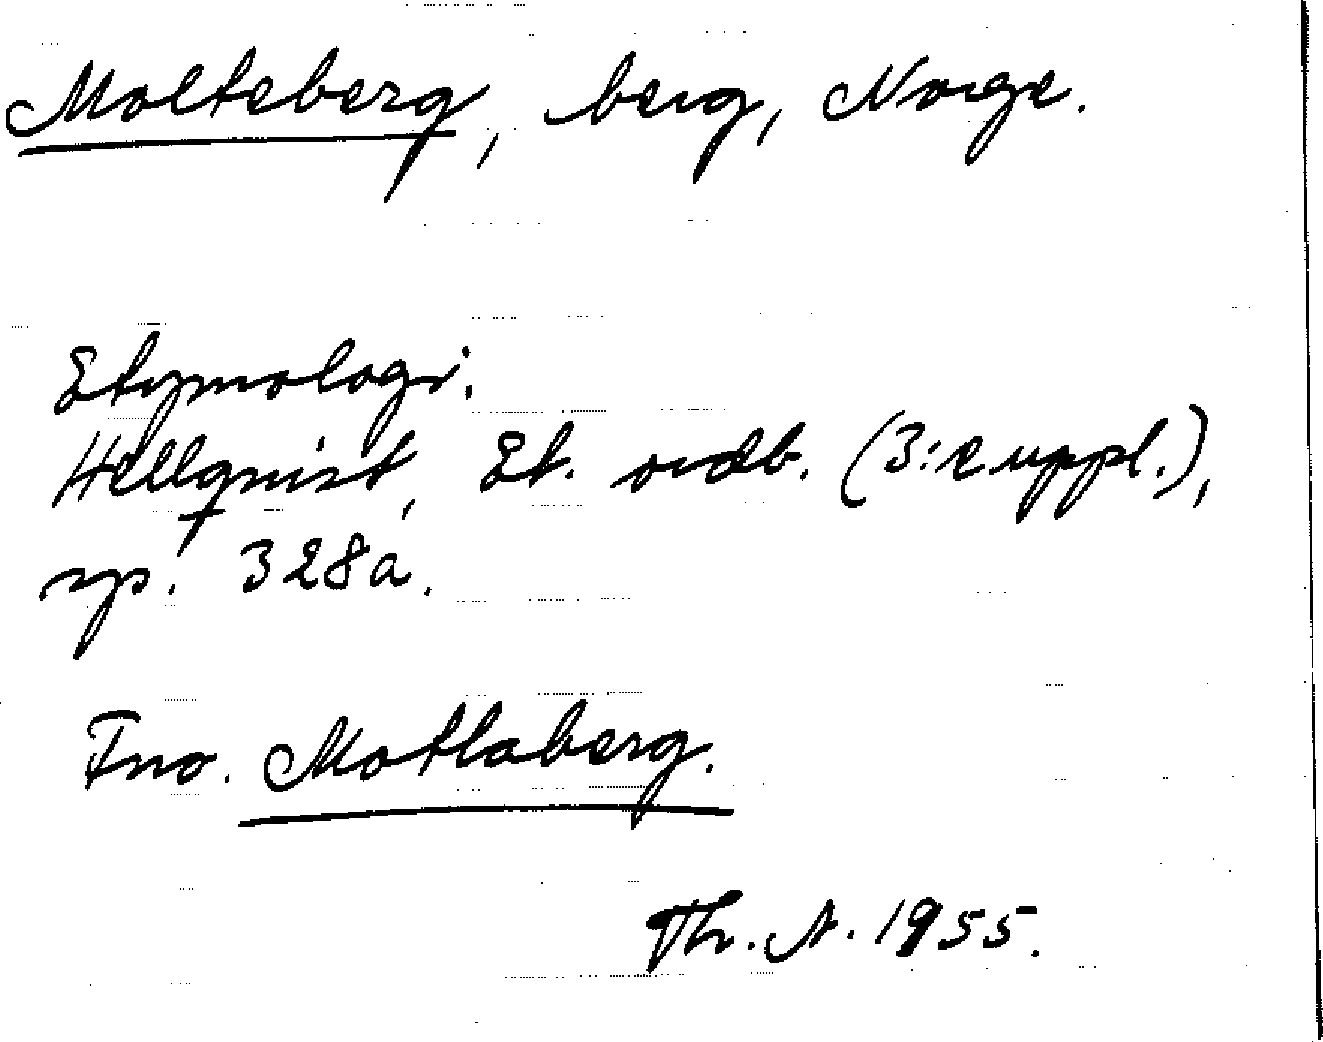 Molteberg, berg, Norge.
Etymologi.
Hellquist, Et. ordb. (3:e uppl.),
sp. 328a.
Fno. Motlaberg.
Th. A. 1955.